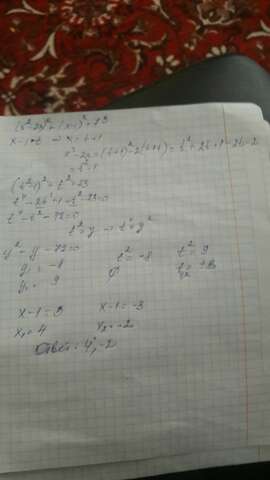 (x²-2x)²+(x-1)²=73
x-1=t ⇒ x=t+1
x²-2x=(t+1)²-2(t+1)=t²+2t+1-2t-2
=t²-1
(t²-1)²+t²=73
t⁴-2t²+1+t²-73=0
t⁴-t²-72=0
t²=y → t⁴=y²
y²-y-72=0 t²=-8 t²=9
y₁=-8 ∅ t=±3
y₂=9
x-1=3 x-1=-3
x₁=4 x₂=-2
Ответ: 4; -2